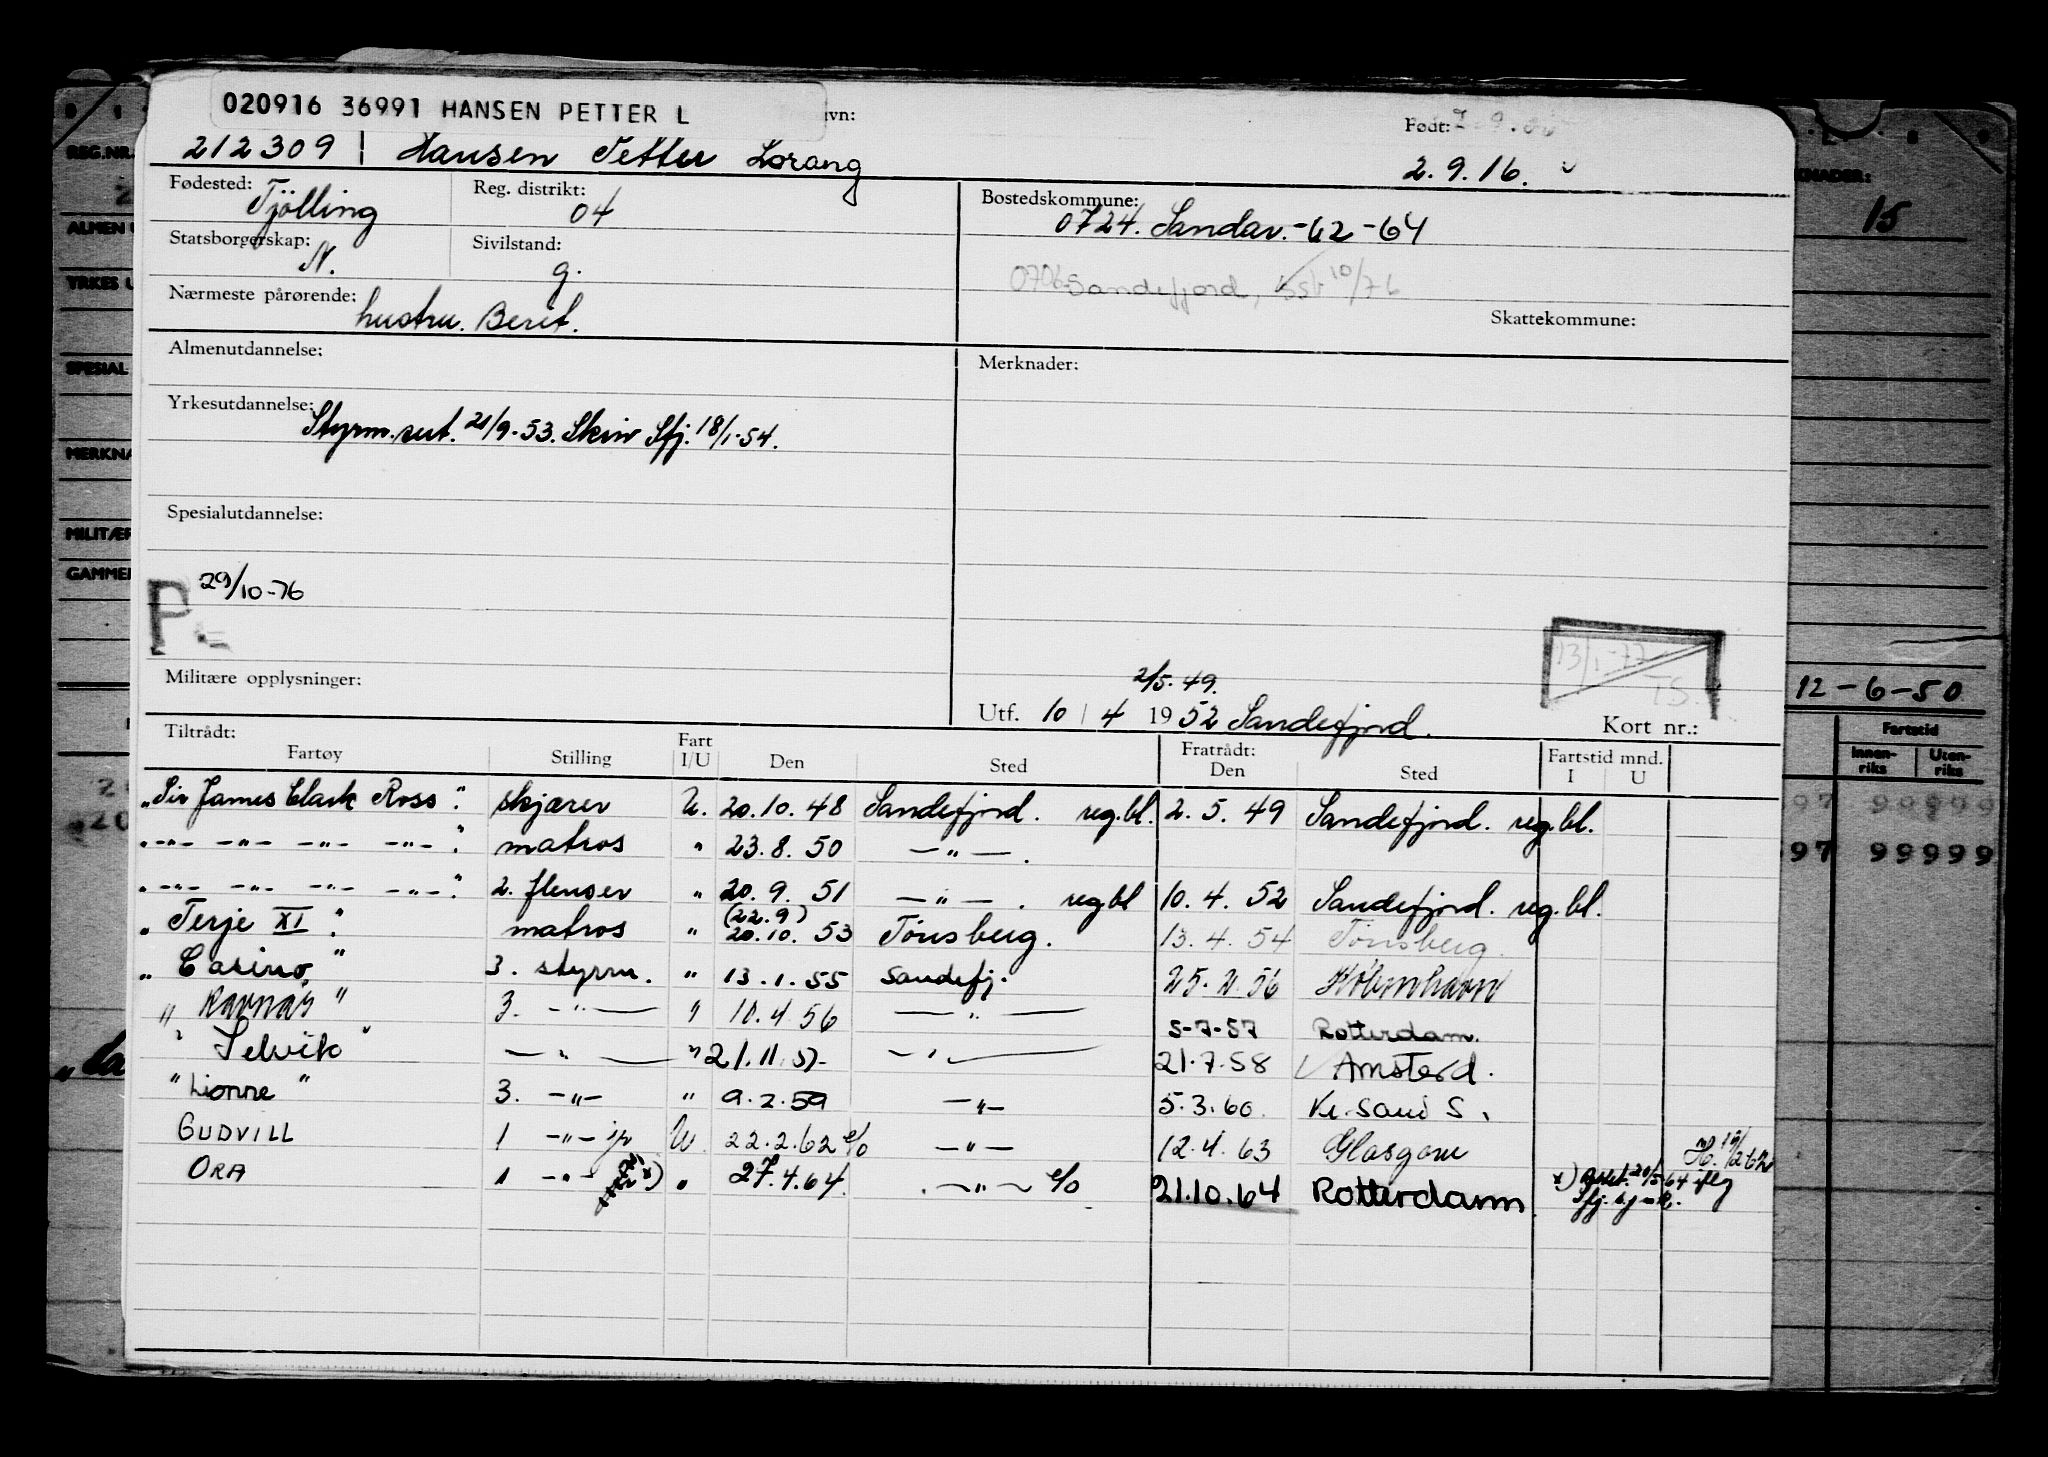 020916 36991 HANSEN PETTER L
vn:
Født:
212309 | Hansen Petter Lorang 2.9.16.
Fødested: Tjölling Reg. distrikt: 04 Bostedskommune: 0724. Sandar.-62-64
Statsborgerskap: N. Sivilstand: g.
0706 Sandefjord, 10/76
Nærmeste pårørende: hustru. Berit.
Skattekommune:
Almenutdannelse: Merknader:
Yrkesutdannelse: Styrm.sert. 21/9-53. Skriv Sfj. 18/1-54.
Spesialutdannelse:
P. 29/10-76
13/1-77 TS
Militære opplysninger:
2/5.49.
Utf. 10 / 4 1952 Sandefjord. Kort nr.:
Tiltrådt: Fratrådt:
Fartøy Stilling Fart I/U Den Sted Den Sted Fartstid mnd. I U
"Sir James Clark Ross". skjærer U. 20.10.48 Sandefjord. reg.bl. 2.5.49 Sandefjord. reg.bl.
"-"- -"- -"- -"-". matros " 23.8.50 -"-.
"-"- -"- -"- -"-". 2. flenser " 20.9.51 -"-. reg.bl 10.4.52 Sandefjord. reg.bl.
"Terje XI". matros " (22.9) 20.10.53 Tönsberg. 13.4.54 Tönsberg.
"Casino" 3. styrm. " 13.1.55 Sandefj. 25.2.56 Köbenhavn
"Ravnås" 3. -"- " 10.4.56 -"- 5-7-57 Rotterdam.
"Selvik" -"- " 21.11.57- -"- 21.7.58 Amsterd.
"Lionne" 3. -"- " 9.2.59 -"- 5.3.60. Kr.sand S.
GUDVILL 1 -"- U 22.2.62 e/o -"- 12.4.63 Glasgow
ORA 1 -"- x) " 27.4.64. -"- e/o 21.10.64 Rotterdam
x) 20/5-64
REG.NR.
ALMEN
YRKES U
SPESIAL
MERKNA
MILITÆR
GAMMEL
KNADER:
15
12-6-50
Fartstid
Innen-riks Uten-riks
97 99999
97 99999